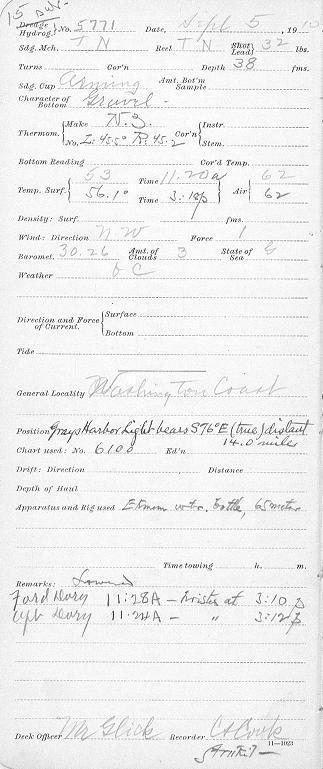 15
Dredge
Hydrog. No. 5771 Date, Sept 5, 1910
Sdg. Mch. TN Reel TN Shot Lead 32 lbs.
Turns Cor'n Depth 38 fms.
Sdg. Cup Arming Amt. Bot'm Sample
Character of Bottom Gravel
Thermom. Make N.Z. Cor'n Instr.
No. L: 45.5° R: 45.2 Stem.
Bottom Reading Cor'd Temp.
Temp. Surf. 53 Time 11.20a Air 62
56.1° Time 3:18p 62
Density: Surf. fms.
Wind: Direction NW Force 1
Baromet. 30.26 Amt. of Clouds 3 State of Sea
Weather bc
Direction and Force of Current. Surface
Bottom
Tide
General Locality Washington Coast
Position Grays Harbor Light bears S76°E (true) distant
14.0 miles
Chart used: No. 6100 Ed'n
Drift: Direction Distance
Depth of Haul
Apparatus and Rig used Ekman water bottle, 65 meters
Time towing h. m.
Remarks: Lowered
Ford Dory 11:28A – hoisted at 3:10 p
Dory 11:24A – " 3:12p
Deck Officer Mr Glick Recorder Cook
11—1023